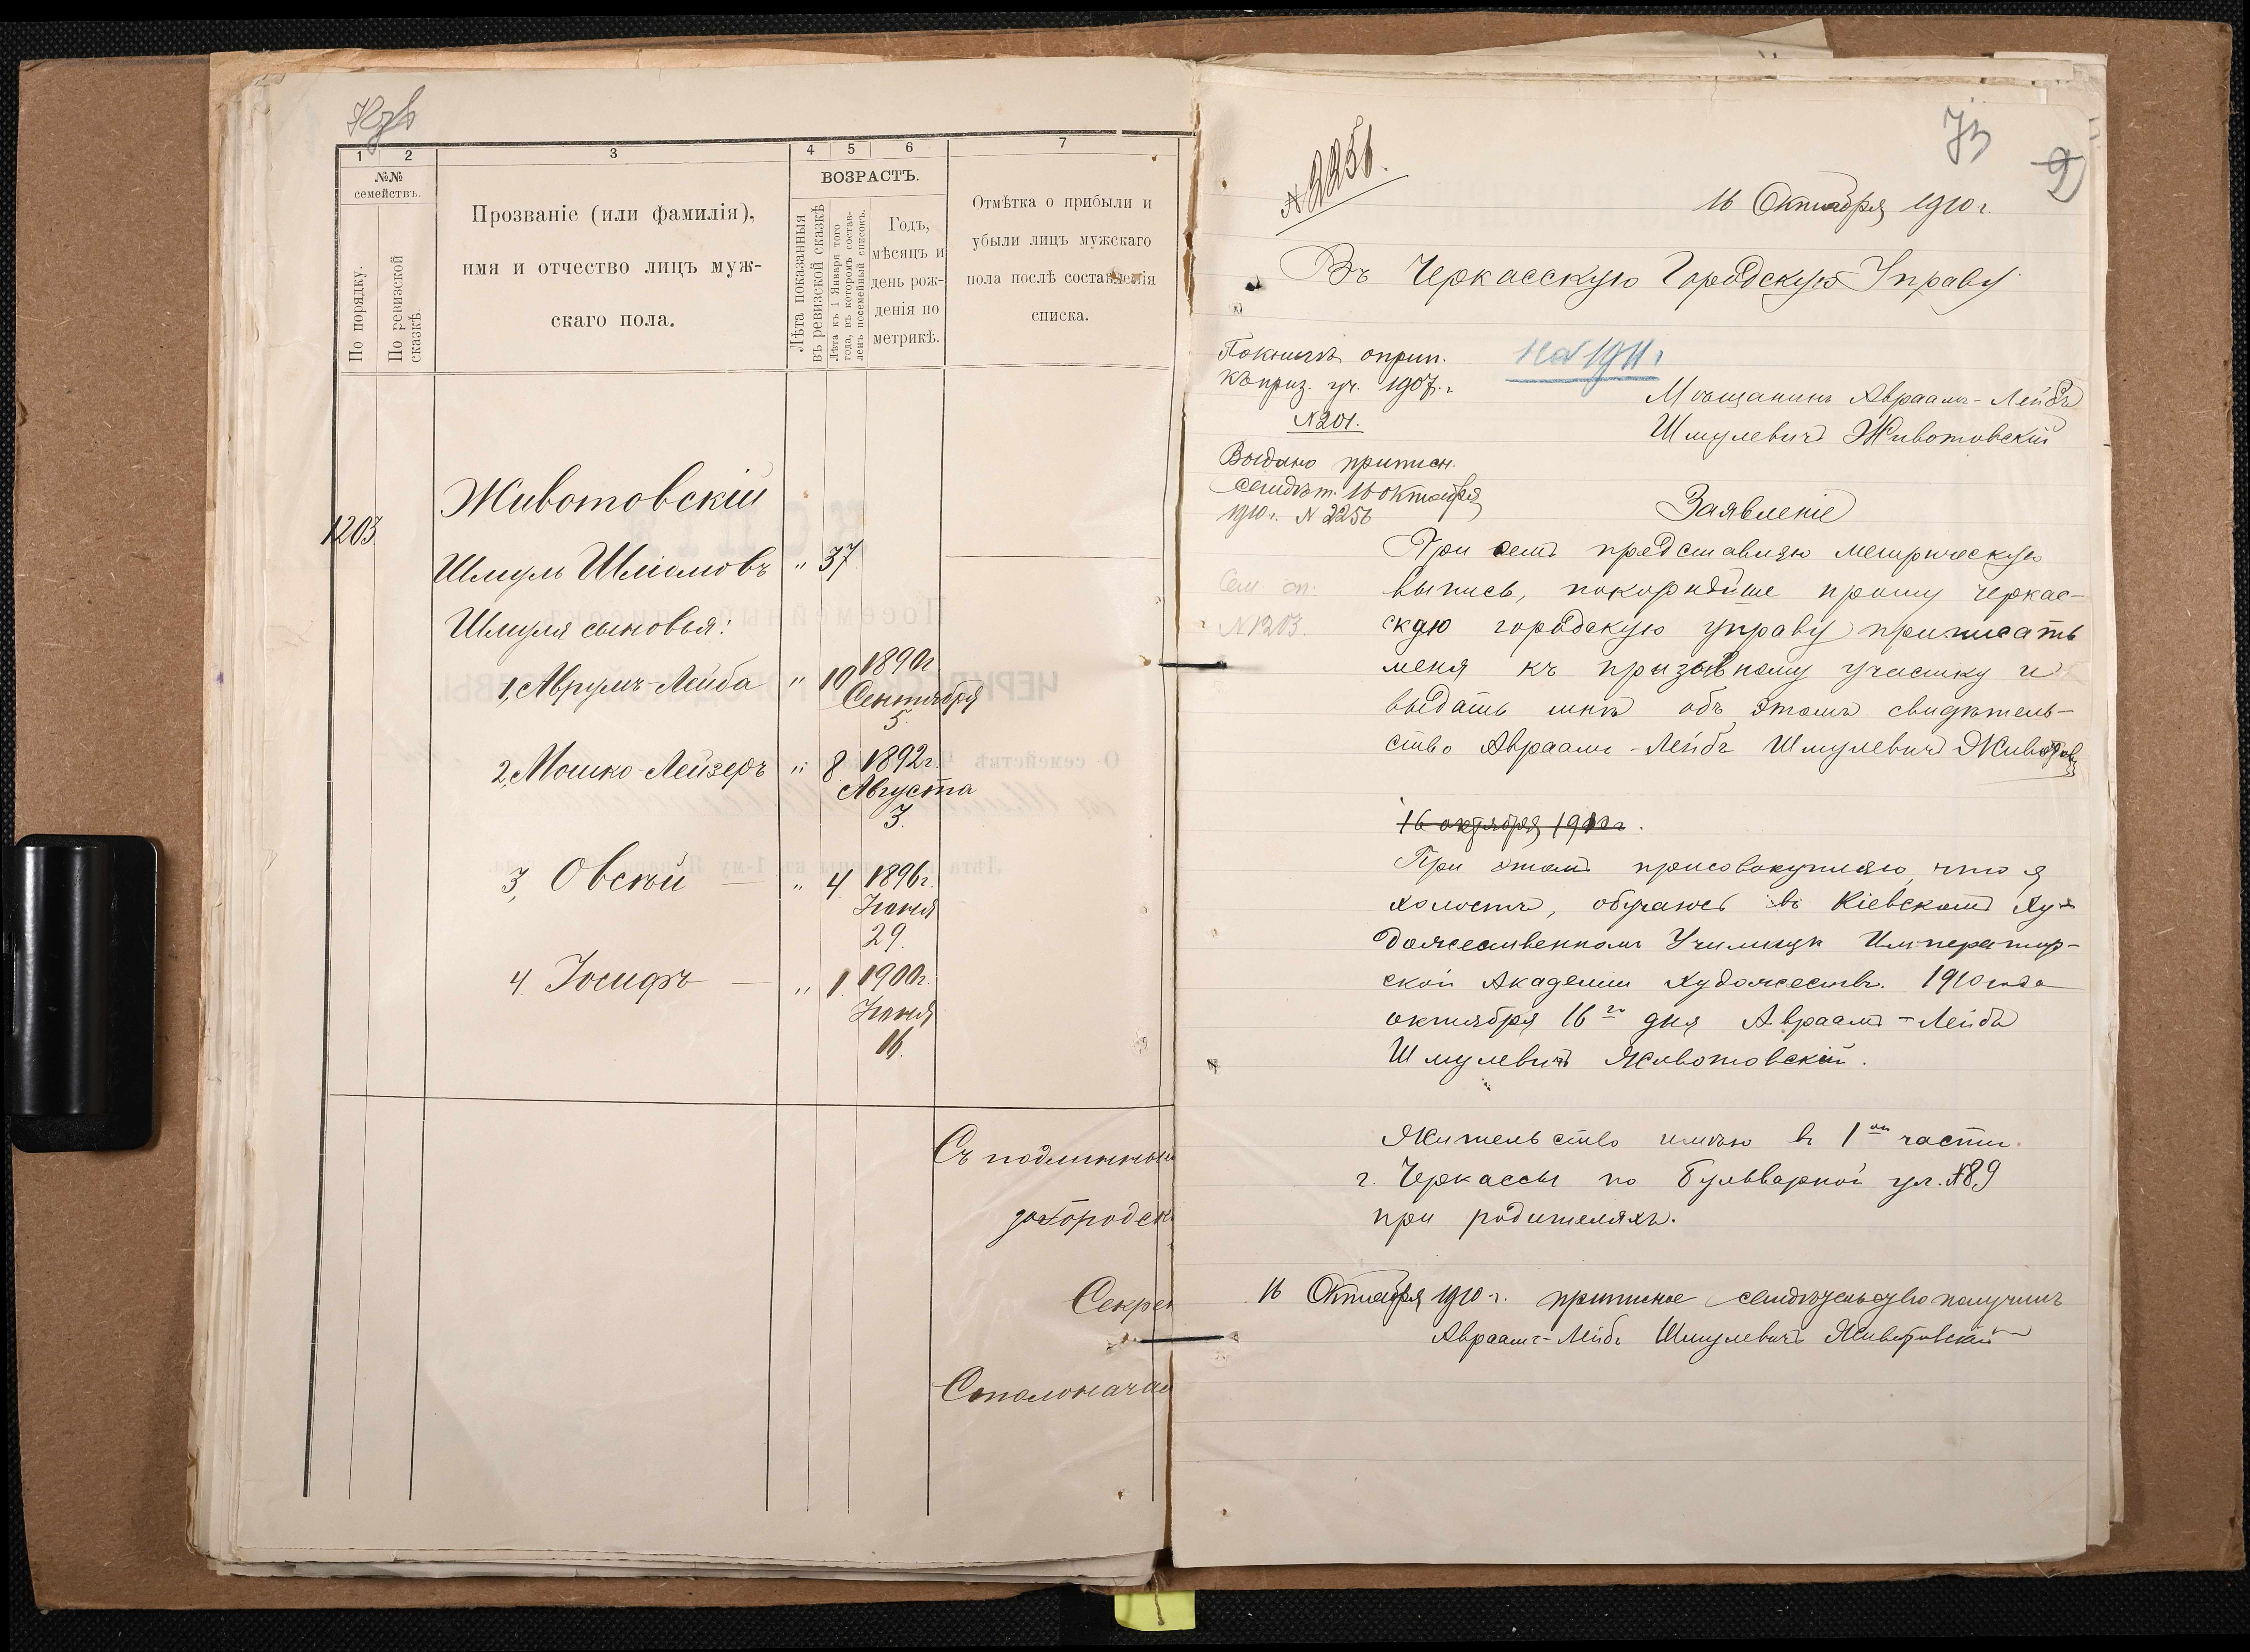 1 2 3 4 5 6 7
№№ семействъ.
По порядку.
По ревизской сказкѣ.
Прозваніе (или фамилія),
имя и отчество лицъ муж-
скаго пола.
ВОЗРАСТЪ.
Лѣта показанныя въ ревизской сказкѣ
Лѣта къ 1 Января того года, въ которомъ составленъ посемейный списокъ.
Годъ,
мѣсяцъ и
день рож-
денія по
метрикѣ.
Отмѣтка о прибыли и
убыли лицъ мужскаго
пола послѣ составленія
списка.
1203.
Животовскій
Шмуль Шліомовъ " 37.
Шмуля сыновья:
1, Аврумъ-Лейба " 10 1890г.
Сентября
5.
2, Мошко-Лейзеръ " 8 1892г.
Августа
3.
3, Овсѣй — " 4 1896г.
Іюня
29.
4. Іосифъ — " 1. 1900г.
Іюня
16.
Съ подлинны
городск
Секрет
Столоначал
№ 2256.
73
9
16 Октября 1910 г.
Въ Черкасскую Городскую Управу
на 1911 г
къ приз. уч. 1907. г
№ 201.
Мѣщанинъ Авраамъ-Лейбъ
Шмулевичъ Животовскій
Выдано приписн.
свидѣт. 16 октября
1910 г. № 2256
Сем сп.
№ 1203.
Заявленіе
При семъ представляю метрическую
выпись, покорнѣйше прошу черкас-
скую городскую управу приписать
меня къ призывному участку и
выдать мнѣ объ этомъ свидѣтель-
ство Авраамъ-Лейбъ Шмулевичъ Животов
16 октября 1910г.
При этомъ присовокупляю, что я
холостъ, обучаюсь въ Кіевскомъ Ху-
дожественномъ Училищѣ Император-
ской Академіи Художествъ. 1910 года
октября 16го дня Авраамъ-Лейбъ
Шмулевичъ Животовскій.
Жительство имѣю въ 1ой части
г. Черкассы по Бульварной ул. №89
при родителяхъ.
16 Октября 1910 г. приписное свидѣтельство получилъ
Авраамъ-Лейбъ Шмулевичъ Животовскій